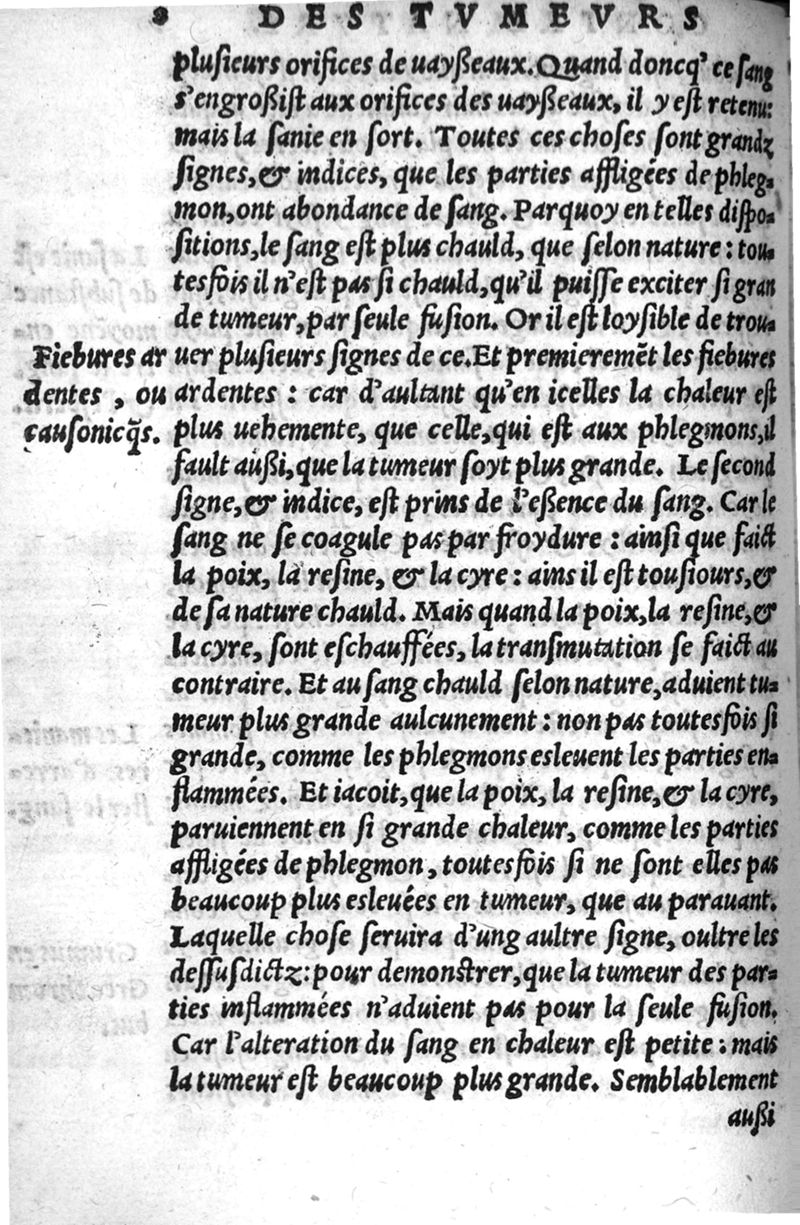 8 DES TVMEVRS
pluſieurs orifices de uayßeaux. Quand doncq' ce ſang
s'engroßiſt aux orifices des uayßeaux, il y eſt retenu:
mais la ſanie en ſort. Toutes ces choſes ſont grandz
ſignes, & indices, que les parties affligées de phleg-
mon, ont abondance de ſang. Parquoy en telles diſpo-
ſitions, le ſang eſt plus chauld, que ſelon nature: tou-
tesfois il n'eſt pas ſi chauld, qu'il puiſſe exciter ſi gran
de tumeur, par ſeule fuſion. Or il eſt loyſible de trou-
uer pluſieurs ſignes de ce. Et premieremēt les fiebures
ardentes: car d'aultant qu'en icelles la chaleur eſt
plus uehemente, que celle, qui eſt aux phlegmons, il
fault außi, que la tumeur ſoyt plus grande. Le ſecond
ſigne, & indice, eſt prins de l'eßence du ſang. Car le
ſang ne ſe coagule pas par froydure: ainſi que faict
la poix, la reſine, & la cyre: ains il eſt touſiours, &
de ſa nature chauld. Mais quand la poix, la reſine, &
la cyre, ſont eſchauffées, la tranſmutation ſe faict au
contraire. Et au ſang chauld ſelon nature, aduient tu-
meur plus grande aulcunement: non pas toutesfois ſi
grande, comme les phlegmons esleuent les parties en-
flammées. Et iacoit, que la poix, la reſine, & la cyre,
paruiennent en ſi grande chaleur, comme les parties
affligées de phlegmon, toutesfois ſi ne ſont elles pas
beaucoup plus esleuées en tumeur, que au parauant.
Laquelle choſe ſeruira d'ung aultre ſigne, oultre les
deſſusdictz: pour demonſtrer, que la tumeur des par-
ties inflammées n'aduient pas pour la ſeule fuſion.
Car l'alteration du ſang en chaleur eſt petite: mais
la tumeur eſt beaucoup plus grande. Semblablement
außi
Fiebures ar
dentes, ou
cauſonicq̃s.